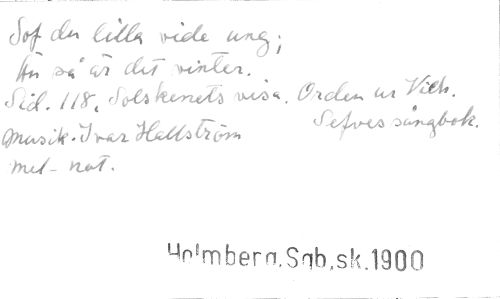 Sof du lilla vide ung;
Än så är det vinter.
Sid. 118, Solskenets visa. Orden ur Vilh.
Sefves sångbok.
Musik: Ivar Hallström
mel - not.
Holmberg, Sgb, sk. 1900